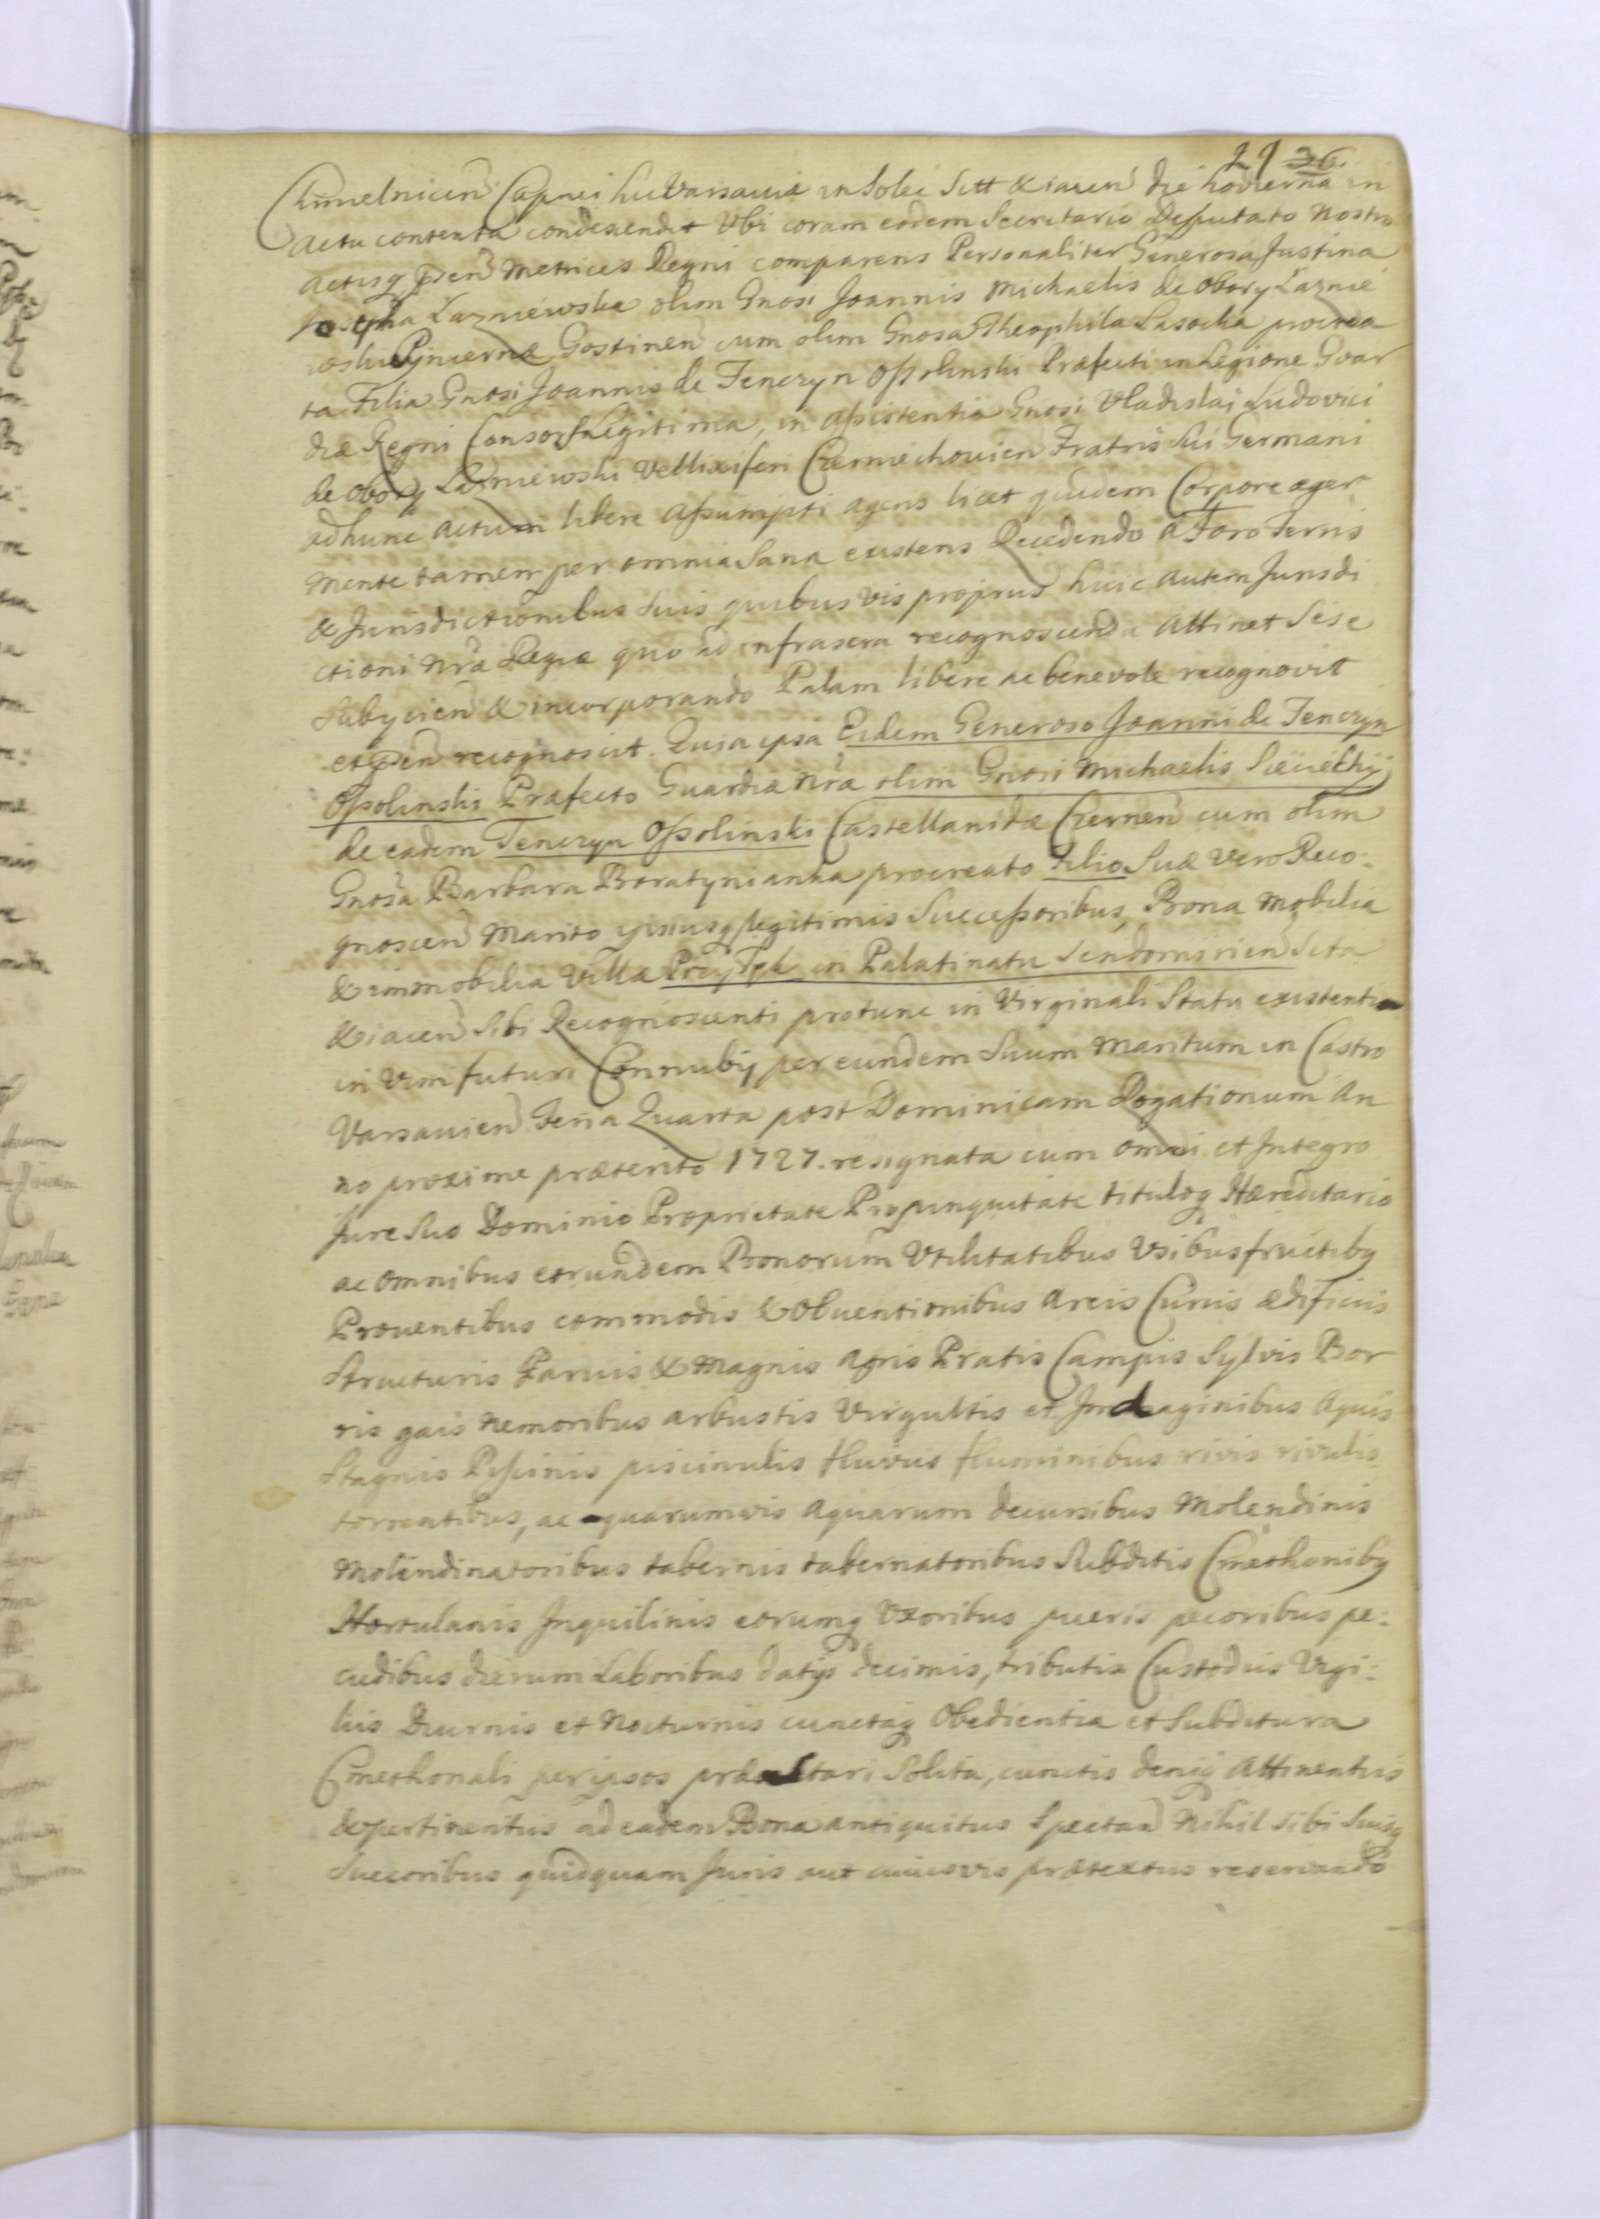 29 36.
Chmelnicen Capnei hic Varsaviæ in Solec Sitt & iacen die hodierna in
actu contenta condescendit Ubi coram eodem Secretario Deputato Nostro
actisq pñen Metrices Regni comparens Personaliter Generosa Justina
Josepha Łazniewska olim Gnosi Joannis Michaelis de Obory Łaznie
wski Pincernæ Gostinen cum olim Gnosa Theophila Lasocka procrea
ta Filia Gnosi Joannis de Tenczyn Ossolinski Præfecti in Legione Guar
diæ Regni Consors Legitima, in assistentia Gnosi Vladislai Ludovici
de Obory Łazniewski Vexilliferi Czerniechovien Fratris Sui Germani
ad hunc actum libere assumpti agens licet quidem Corpore ægra
mente tamen per omnia Sana existens Recedendo a Foro Terris
& Jurisdictionibus suis quibusvis proprijs huic autem Jurisdi
ctioni Nrã Regiæ quo ad infrascra recognoscenda attinet Sese
Subycien & incorporando Palam libere ac benevole recognovit
et pñen recognoscit. Quia ipsa Eidem Generoso Joanni de Tenczyn
Ossolinski Præfecto Guardiæ Nrã olim Gnosi Michaelis Sieciechÿ
de eadem Tenczyn Ossolinski Castellanidæ Czernen cum olim
Gnosa Barbara Boratynianka procreato Filio Suæ vero Reco-
gnoscen Marito ipsiusq legitimis Successoribus, Bona Mobilia
& immobilia Villa Przytyk in Palatinatu Sendomirien Sita
& iacen Sibi Recognoscenti pro tunc in Virginali Statu existenti
in Vim futuri Connubij per eundem Suum Maritum in Castro
Varsavien Feria Quarta post Dominicam Rogationum An
no proxime præterito 1727. resignata cum omni et Integro
Jure Suo Dominio Proprietate Propinquitate tituloq Hæreditario
ac omnibus eorundem Bonorum Utilitatibus Usibusfructiby
Proventibus commodis & Obventionibus Areis Curiis ædificiis
Structuris Parvis & Magnis Agris Pratis Campis Sylvis Bor
ris gais Nemoribus arbustis Virgultis et Indaginibus Aquis
Stagnis Piscinis piscinulis fluviis fluminibus rivis rivulis
torrentibus, ac quarumvis Aquarum decursibus Molendinis
Molendinatoribus tabernis tabernatoribus Subditis Cmethoniby
Hortulanis Inquilinis eorumq Uxoribus pueris pecoribus pe-
cudibus dierum Laboribus datijs decimis, tributis Custodiis Vigi-
liis Diurnis et Nocturnis cunctaq Obedientia et Subditura
Cmethonali per ipsos præstari Solita, cunctis deniq Attinentiis
& pertinentiis ad eadem Bona antiquitus Spectan Nihil sibi Suisq
Succoribus quidquam Juris aut cuiusvis prætextus reservando